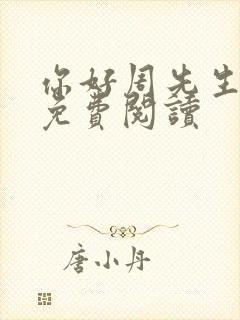 你好周先生
免費閱讀
唐小丹